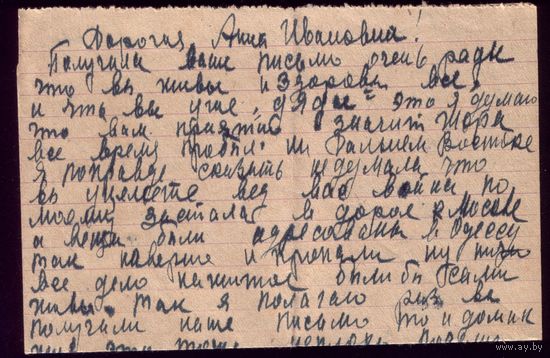 Дорогая, Анна Ивановна!
Получила ваше письмо очень рады
что вы живы и здоровы все,
и что вы уже "дяды" это я думаю
что вам приятно значит Жора
все время пробыл на Дальнем Востоке
я поправде сказать недумала что
вы уцелете вед вас война по
моему застала в дороге в Москве
а вещи были адресованы в Одессу
так наверно и пропали ну
все дело нажитое были бы сами
живы. так я полагаю раз вы
получили наше письмо то и домик
ваш